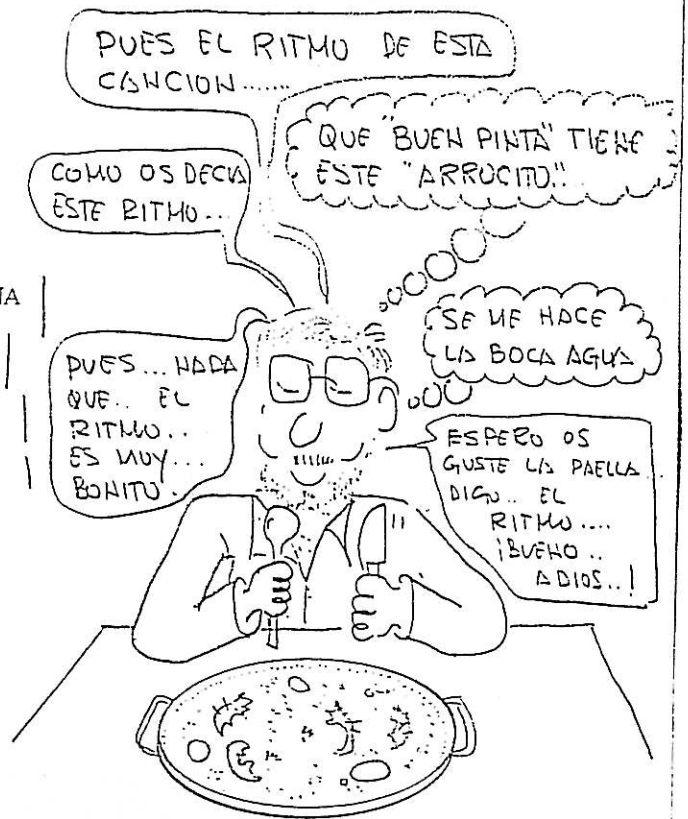 PUES EL RITMO DE ESTA
CANCION......
QUE "BUEN PINTA" TIENE
ESTE "ARROCITO"..
COMO OS DECIA
ESTE RITMO...
NA
SE ME HACE
LA BOCA AGUA
PUES... NADA
QUE.. EL
RITMO..
ES MUY...
BONITO.
ESPERO OS
GUSTE LA PAELLA..
DIGO.. EL
RITMO....
¡BUENO..
ADIOS..!